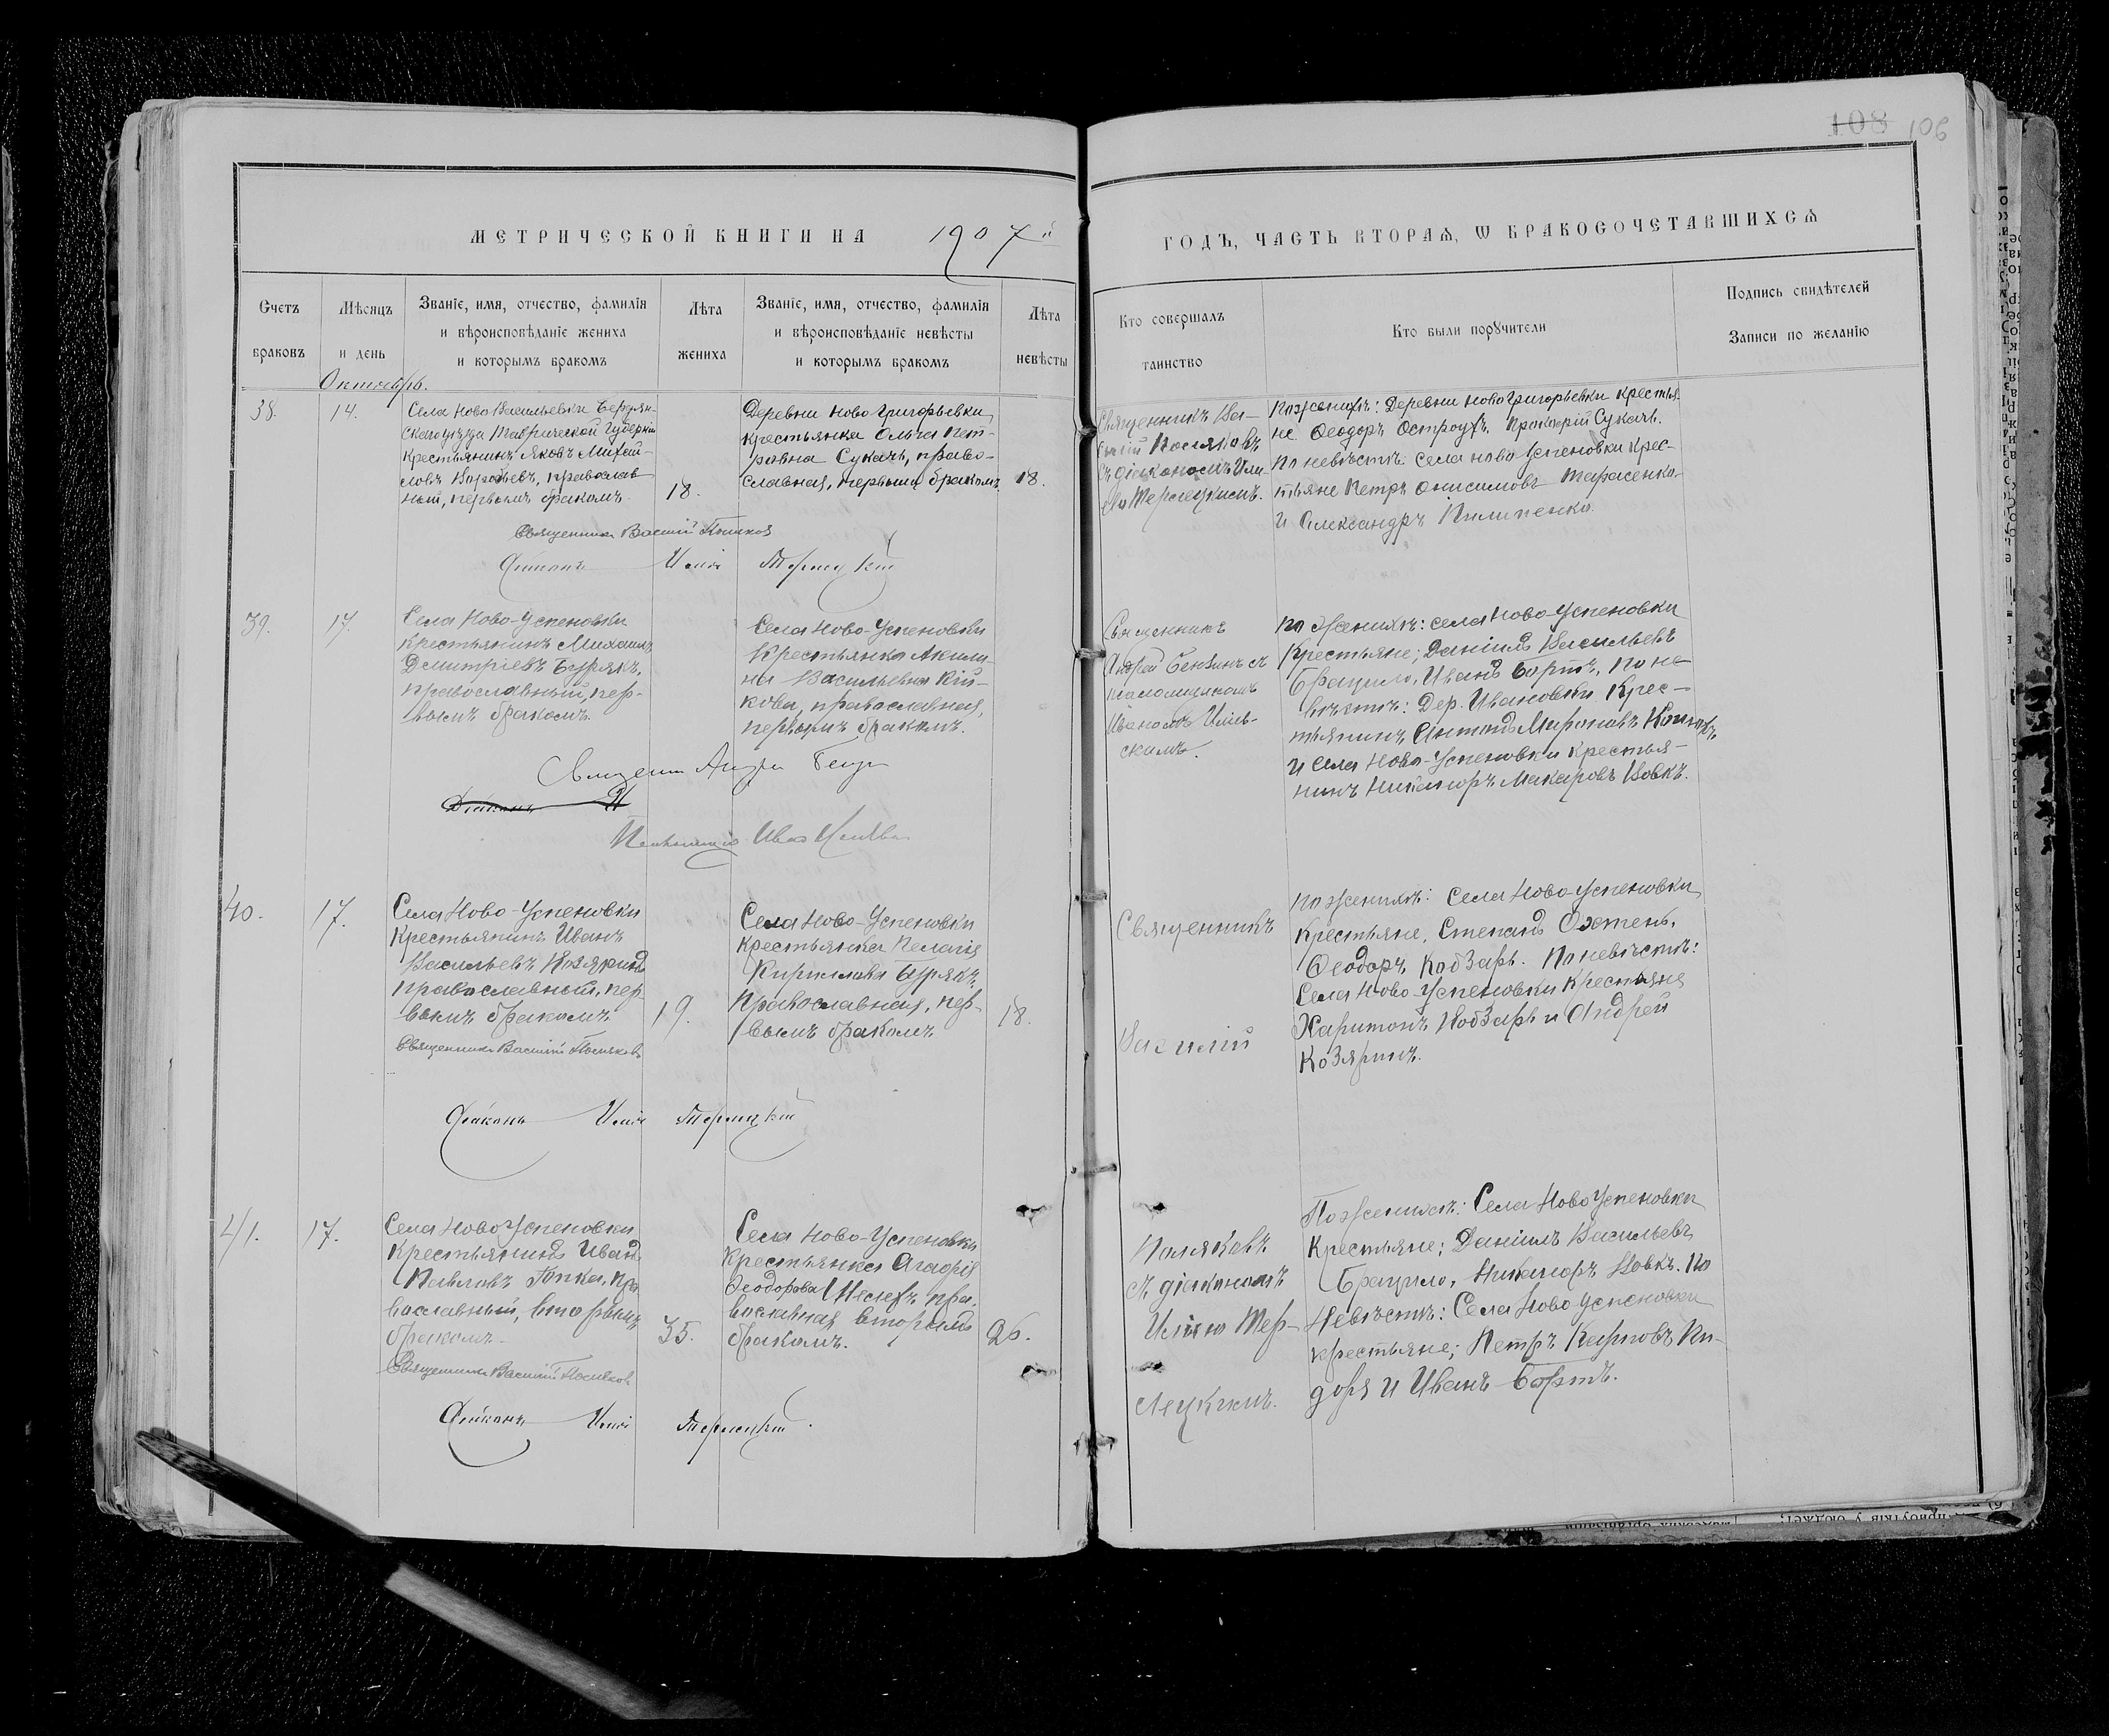 108 106
МЕТРИЧЕСКОЙ КНИГИ НА 1907й
ГОДЪ, ЧАСТЬ ВТОРАѦ, Ѡ БРАКОСОЧЕТАВШИХСѦ
Счетъ
браковъ
Мѣсяцъ
и день
Званіе, имя, отчество, фамилія
и вѣроисповѣданіе жениха
и которымъ бракомъ
Лѣта
жениха
Званіе, имя, отчество, фамилія
и вѣроисповѣданіе невѣсты
и которымъ бракомъ
Лѣта
невѣсты
Кто совершалъ
таинство
Кто были порꙋчители
Подпись свидѣтелей
Записи по желанію
Октябрь.
38.
14.
Села Ново Васильевки Бердян-
скаго уѣзда Таврической Губерніи
крестьянинъ Яковъ Михай-
ловъ православ
ный, первымъ бракомъ.
18.
Деревни Ново Григорьевки
крестьянка Ольга Пет-
ровна Сукачъ, право-
славная, первымъ бракомъ.
18.
Священникъ Ва-
силій Поляковъ
съ діакономъ Или-
ею Терлецкимъ.
По женихѣ: Деревни Ново Григорьевки крестья-
не Ѳеодоръ Остроухъ, Прокофій Сукачъ.
По невѣстѣ: села Ново Успеновки крес-
тьяне Петръ Онисимовъ Тарасенко
и Александръ Пилипенко.
Священникъ Василій Поляковъ
Діаконъ Илія Терлецкій
39.
17.
Села Ново-Успеновки
крестьянинъ Михаилъ
Дмитріевъ Бурякъ,
православный, пер-
вымъ бракомъ.
Села Ново-Успеновки
крестьянка Акили-
на Васильевна Кій-
кова, православная,
первымъ бракомъ.
Священникъ
Андрей съ
псаломщикомъ
По женихѣ: села Ново-Успеновки
крестьяне; Даніилъ Васильевъ
Брацило, Иванъ Бортъ. По не-
вѣстѣ: Дер. Ивановки крес-
тьянинъ Антонъ Мироновъ
и села Ново-Успеновки крестья-
нинъ Никаноръ Макаровъ Вовкъ.
Священникъ Андрей
Діаконъ И
40.
17.
Села Ново-Успеновки
крестьянинъ Иванъ
Васильевъ Козяринъ
православный, пер-
вымъ бракомъ
19.
Села Ново-Успеновки
крестьянка Пелагія
Кириллова Бурякъ,
православная, пер-
вымъ бракомъ
18.
Священникъ
Василій
По женихѣ: села Ново-Успеновки
крестьяне, Степанъ Охтень,
Ѳеодоръ Кобзарь. По невѣстѣ:
Села Ново-Успеновки крестьяне
Харитонъ Кобзарь и Андрей
Козяринъ.
Священникъ Василій Поляковъ
Діаконъ Илія Терлецкій
41.
17.
Села Ново Успеновки
крестьянинъ Иванъ
Павловъ Гопка, пра-
вославный, вторымъ
бракомъ
35.
Села Ново-Успеновки
крестьянка Агафія
Ѳеодорова пра-
вославная вторымъ
бракомъ.
26.
Поляковъ
съ діакономъ
Иліею Тер-
лецкимъ.
По женихѣ: Села Ново Успеновки
крестьяне; Даніилъ Васильевъ
Брацило, Никаноръ Вовкъ. По
невѣстѣ: Села Ново Успеновки
крестьяне; Петръ Карповъ Пи-
доря и Иванъ Бортъ.
Священникъ Василій Поляковъ
Діаконъ Илія Терлецкій